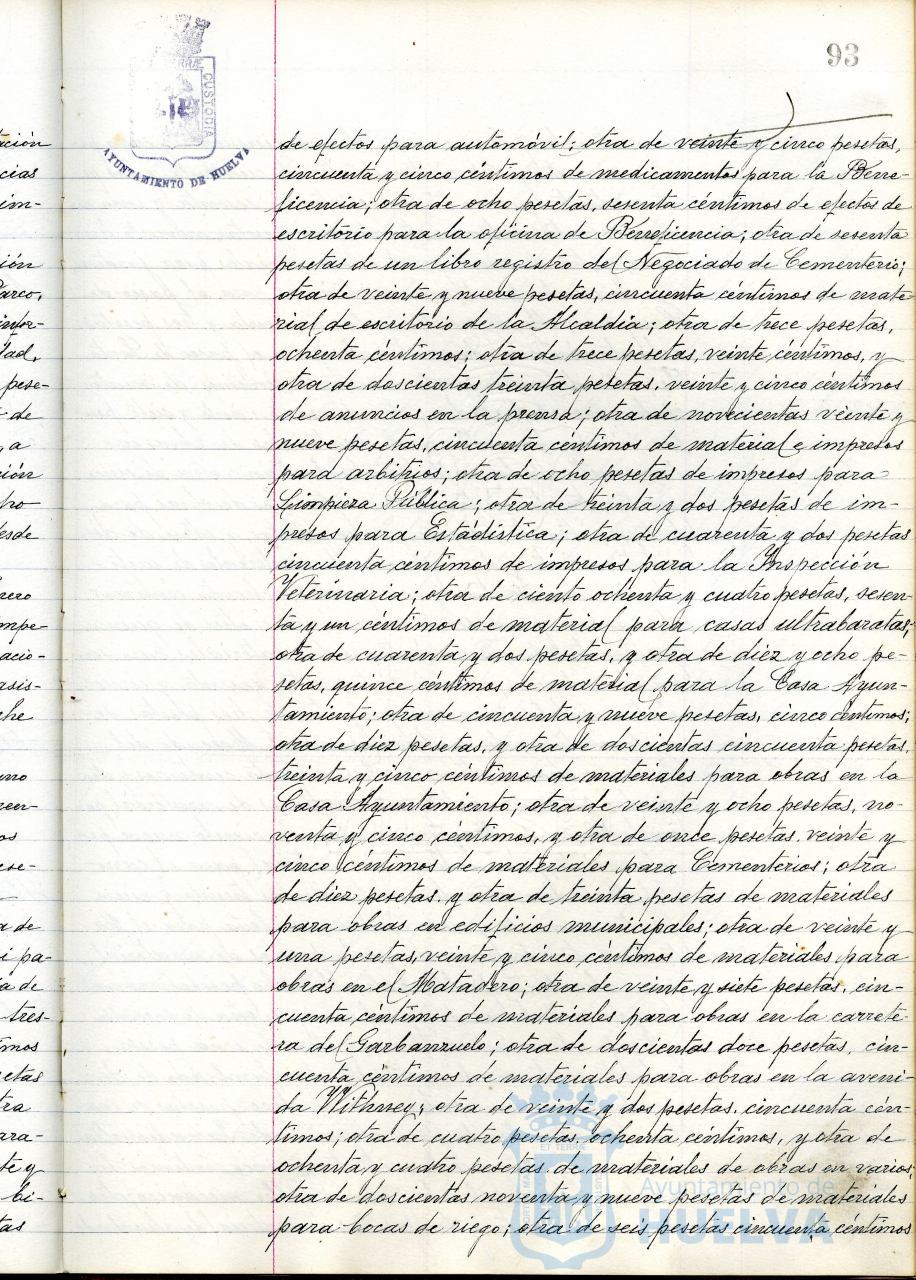 93
CUSTODIA
AYUNTAMIENTO DE HUELVA
de efectos para automóvil; otra de veinte y cinco pesetas,
cincuenta y cinco céntimos de medicamentos para la Bene-
ficencia; otra de ocho pesetas, sesenta céntimos de efectos de
escritorio para la oficina de Beneficencia; otra de sesenta
pesetas de un libro registro del Negociado de Cementerio;
otra de veinte y nueve pesetas, cincuenta céntimos de mate-
rial de escritorio de la Alcaldia; otra de trece pesetas,
ochenta céntimos; otra de trece pesetas, veinte céntimos, y
otra de doscientas treinta pesetas, veinte y cinco céntimos
de anuncios en la prensa; otra de novecientas veinte y
nueve pesetas, cincuenta céntimos de material e impresos
para arbitrios; otra de ocho pesetas de impresos para
Limpieza Pública; otra de treinta y dos pesetas de im-
presos para Estadística; otra de cuarenta y dos pesetas
cincuenta céntimos de impresos para la Inspección
Veterinaria; otra de ciento ochenta y cuatro pesetas, sesen-
ta y un céntimos de material para casas ultrabaratas;
otra de cuarenta y dos pesetas, y otra de diez y ocho pe-
setas, quince céntimos de material para la Casa Ayun-
tamiento; otra de cincuenta y nueve pesetas, cinco céntimos;
otra de diez pesetas, y otra de doscientas cincuenta pesetas,
treinta y cinco céntimos de materiales para obras en la
Casa Ayuntamiento; otra de veinte y ocho pesetas, no-
venta y cinco céntimos, y otra de once pesetas, veinte y
cinco céntimos de materiales para Cementerios; otra
de diez pesetas, y otra de treinta pesetas de materiales
para obras en edificios municipales; otra de veinte y
una pesetas, veinte y cinco céntimos de materiales para
obras en el Matadero; otra de veinte y siete pesetas, cin-
cuenta céntimos de materiales para obras en la carrete-
ra del Garbanzuelo; otra de doscientas doce pesetas, cin-
cuenta céntimos de materiales para obras en la aveni-
da Withney; otra de veinte y dos pesetas, cincuenta cén-
timos; otra de cuatro pesetas, ochenta céntimos, y otra de
ochenta y cuatro pesetas de materiales de obras en varios;
otra de doscientas noventa y nueve pesetas de materiales
para bocas de riego; otra de seis pesetas cincuenta céntimos
Ayuntamiento de
HUELVA